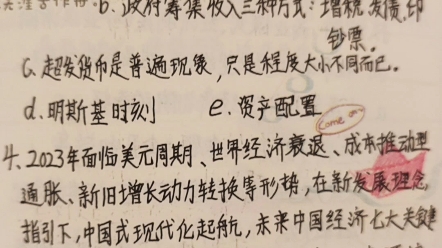 b.政府筹集收入三种方式：增税、发债、印
钞票。
C.超发货币是普遍现象，只是程度大小不同而已。
d.明斯基时刻 e.资产配置
Come on
4.2023年面临美元周期、世界经济衰退、成本推动型
通胀、新旧增长动力转换等形势，在新发展理念
指引下，中国式现代化起航，未来中国经济七大关键